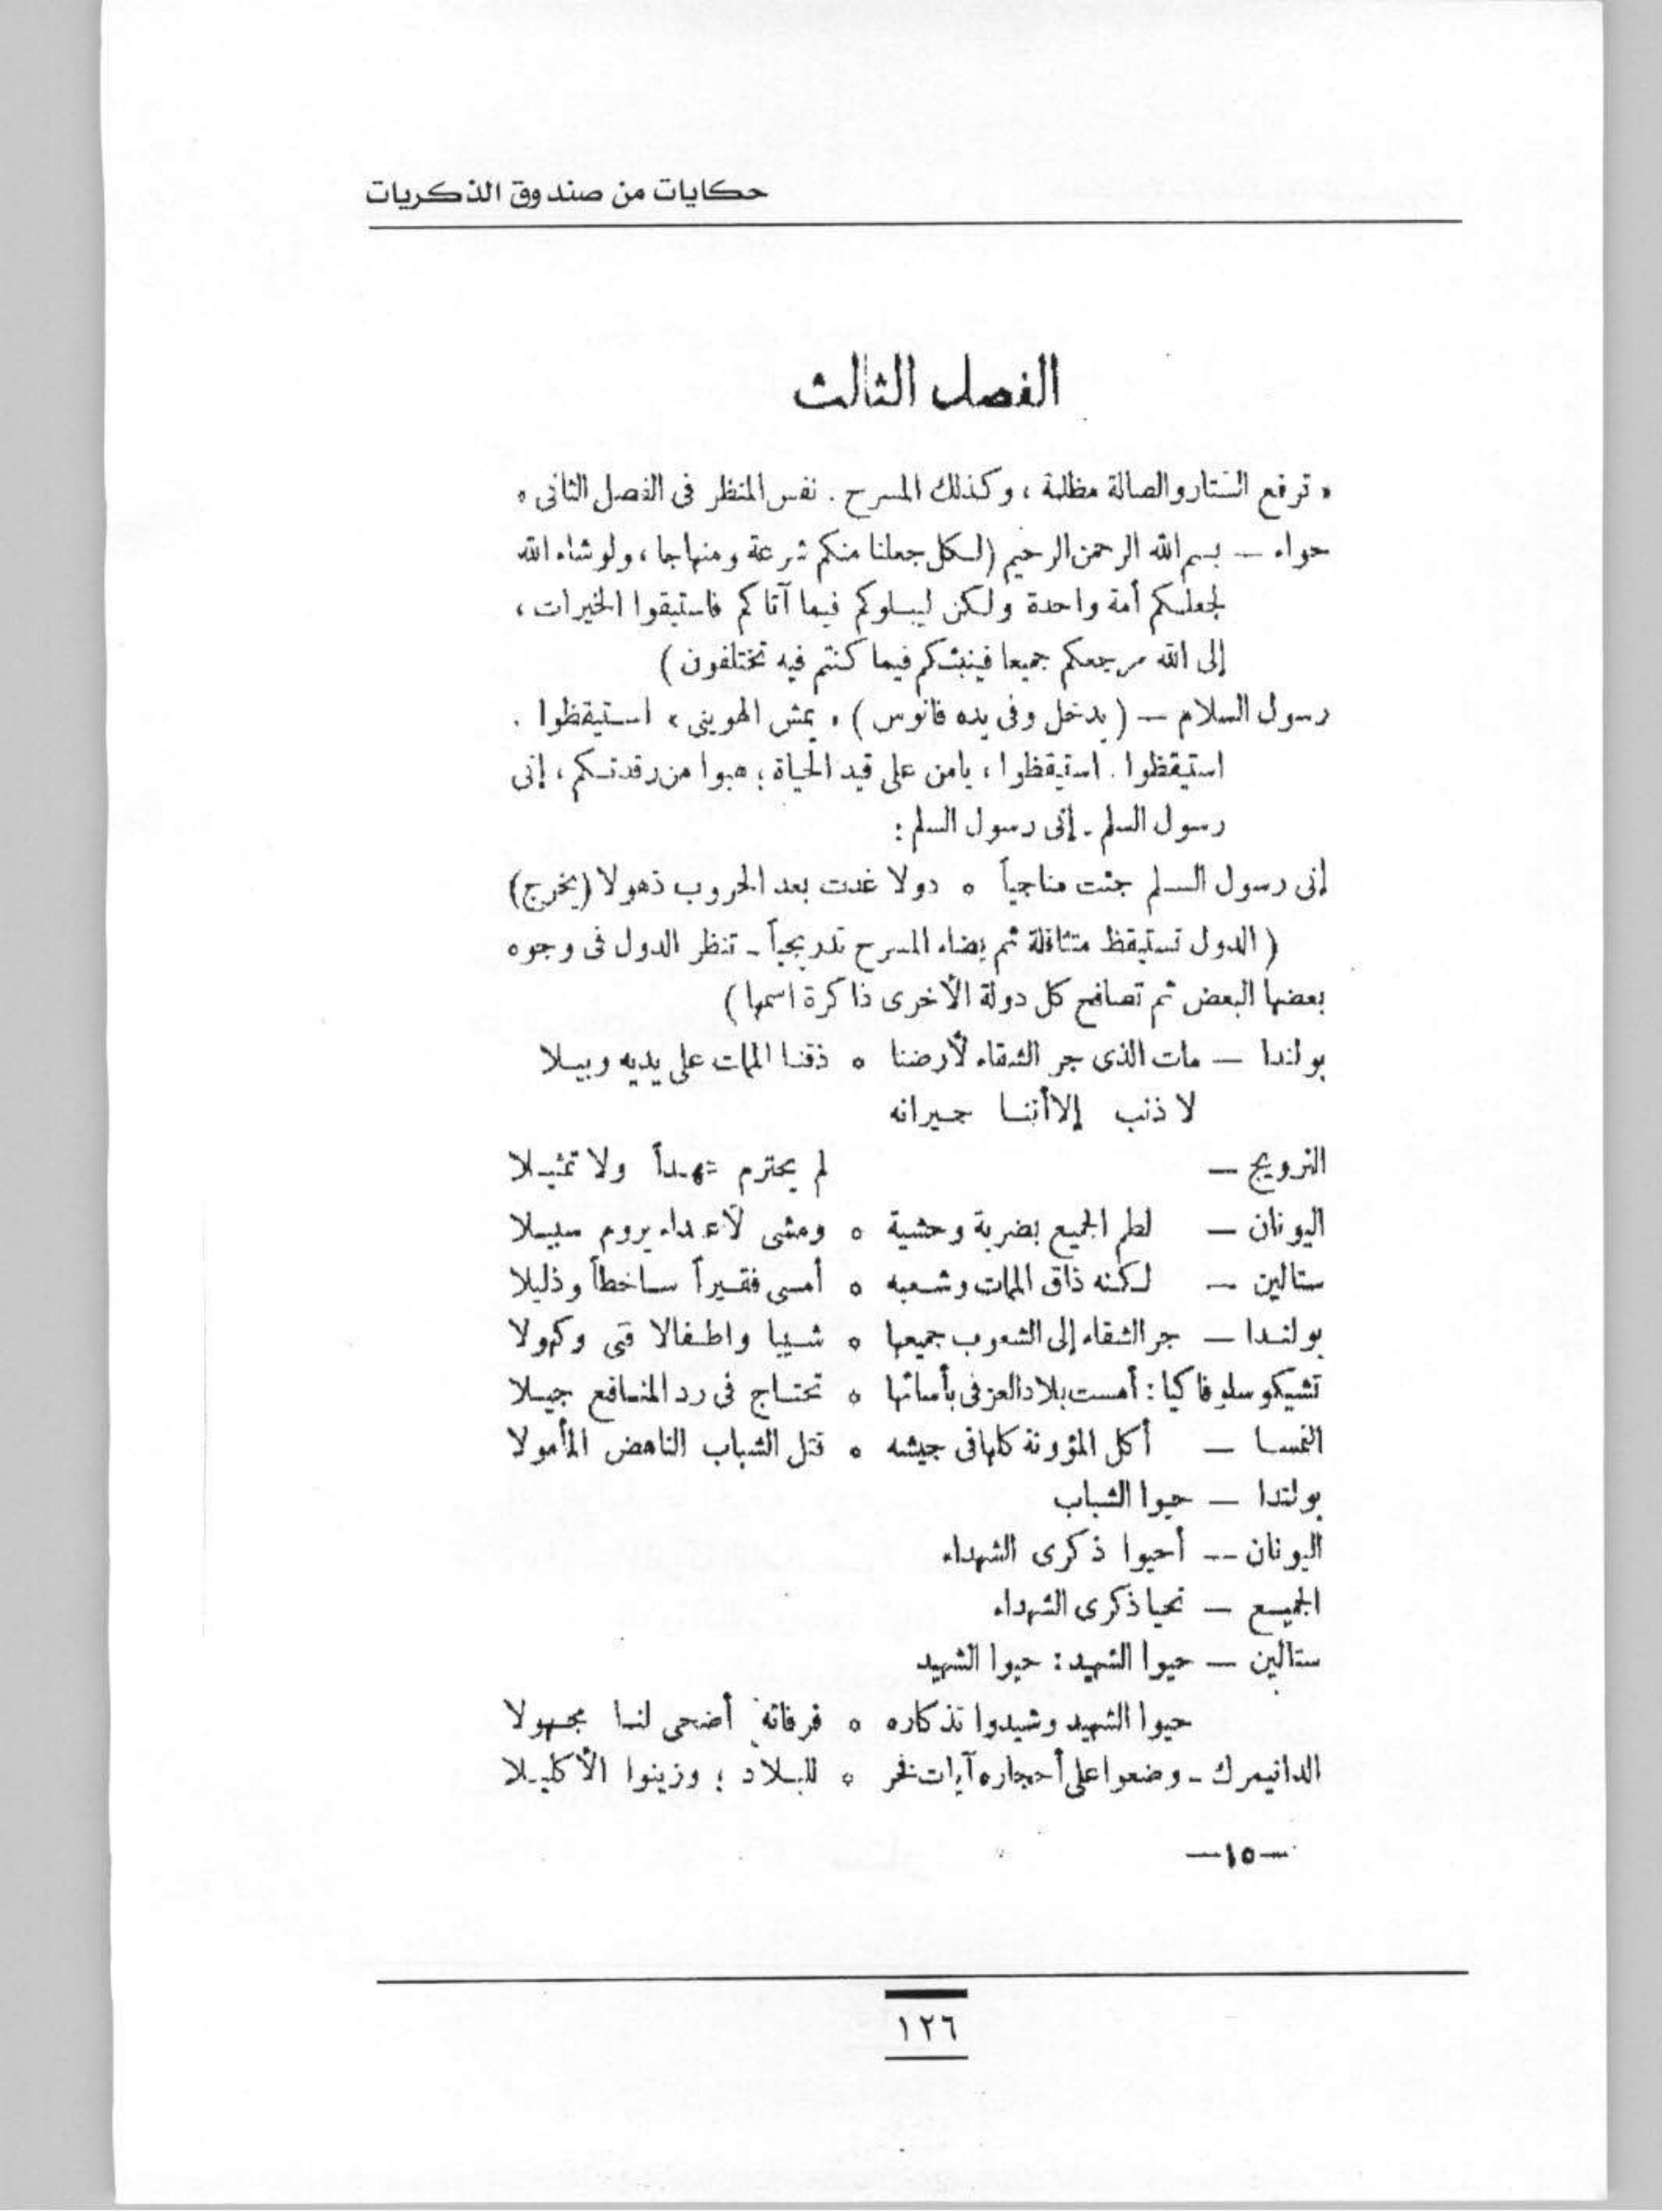 حكايات من صندوق الذكريات
الفصل الثالث
« ترفع الستار والصالة مظلمة ، وكذلك المسرح . نفس المنظر فى الفصل الثانى »
حواء — بسم الله الرحمن الرحيم (لكل جعلنا منكم شرعة ومنهاجا ، ولو شاء الله
لجعلكم أمة واحدة ولكن ليبلوكم فيما آتاكم فاستبقوا الخيرات ،
إلى الله مرجعكم جميعا فينبئكم فيما كنتم فيه تختلفون )
رسول السلام — ( يدخل وفى يده فانوس ) « يمش الهوينى » استيقظوا .
استيقظوا . استيقظوا ، يامن على قيد الحياة ؛ هبوا من رقدتكم ، إنى
رسول السلم - إنى رسول السلم :
إنى رسول السلم جئت مناجياً ٥ دولا غدت بعد الحروب ذهولا (يخرج)
( الدول تستيقظ متثاقلة ثم يضاء المسرح تدريجياً - تنظر الدول فى وجوه
بعضها البعض ثم تصافح كل دولة الأخرى ذاكرة اسمها )
بولندا — مات الذى جر الشقاء لأرضنا ٥ ذقنا الممات على يديه وبيلا
لا ذنب إلا أننا جيرانه
النرويج — لم يحترم عهداً ولا تمثيلا
اليونان — لطم الجميع بضربة وحشية ٥ ومشى لأعداء يروم سبيلا
ستالين — لكنه ذاق الممات وشعبه ٥ أمسى فقيراً ساخطاً وذليلا
بولندا — جر الشقاء إلى الشعوب جميعها ٥ شيبا واطفالا فتى وكهولا
تشيكوسلوفاكيا : أمست بلاد العز فى بأسائها ٥ تحتاج فى رد المنافع جيلا
النمسا — أكل المؤونة كلها فى جيشه ٥ قتل الشباب الناهض المأمولا
بولندا — حيوا الشباب
اليونان -- أحيوا ذكرى الشهداء
الجميع — نحيا ذكرى الشهداء
ستالين — حيوا الشهيد : حيوا الشهيد
حيوا الشهيد وشيدوا تذكاره ٥ فرفاته أضحى لنا مجهولا
الدانيمرك - وضعوا على أحجاره آيات فخر ٥ للبلاد ؛ وزينوا الأكليلا
—١٥—
١٢٦